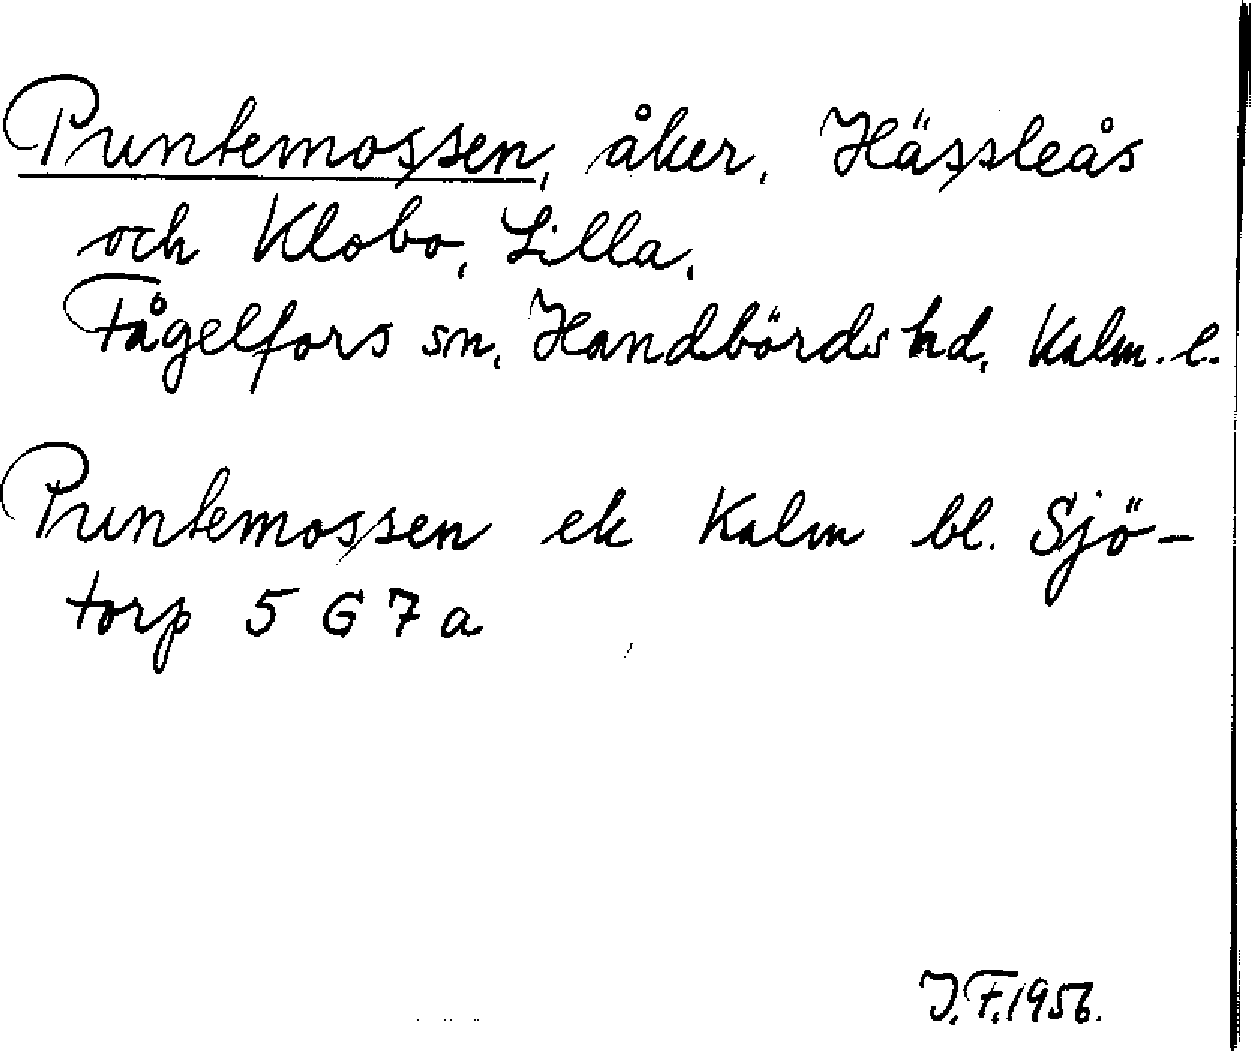 Puntemossen, åker, Hässleås
och Klobo, Lilla,
Fågelfors sn, Handbörds hd, Kalm. l.
Puntemossen ek Kalm bl. Sjö-
torp 5 G 7 a
J.F. 1956.